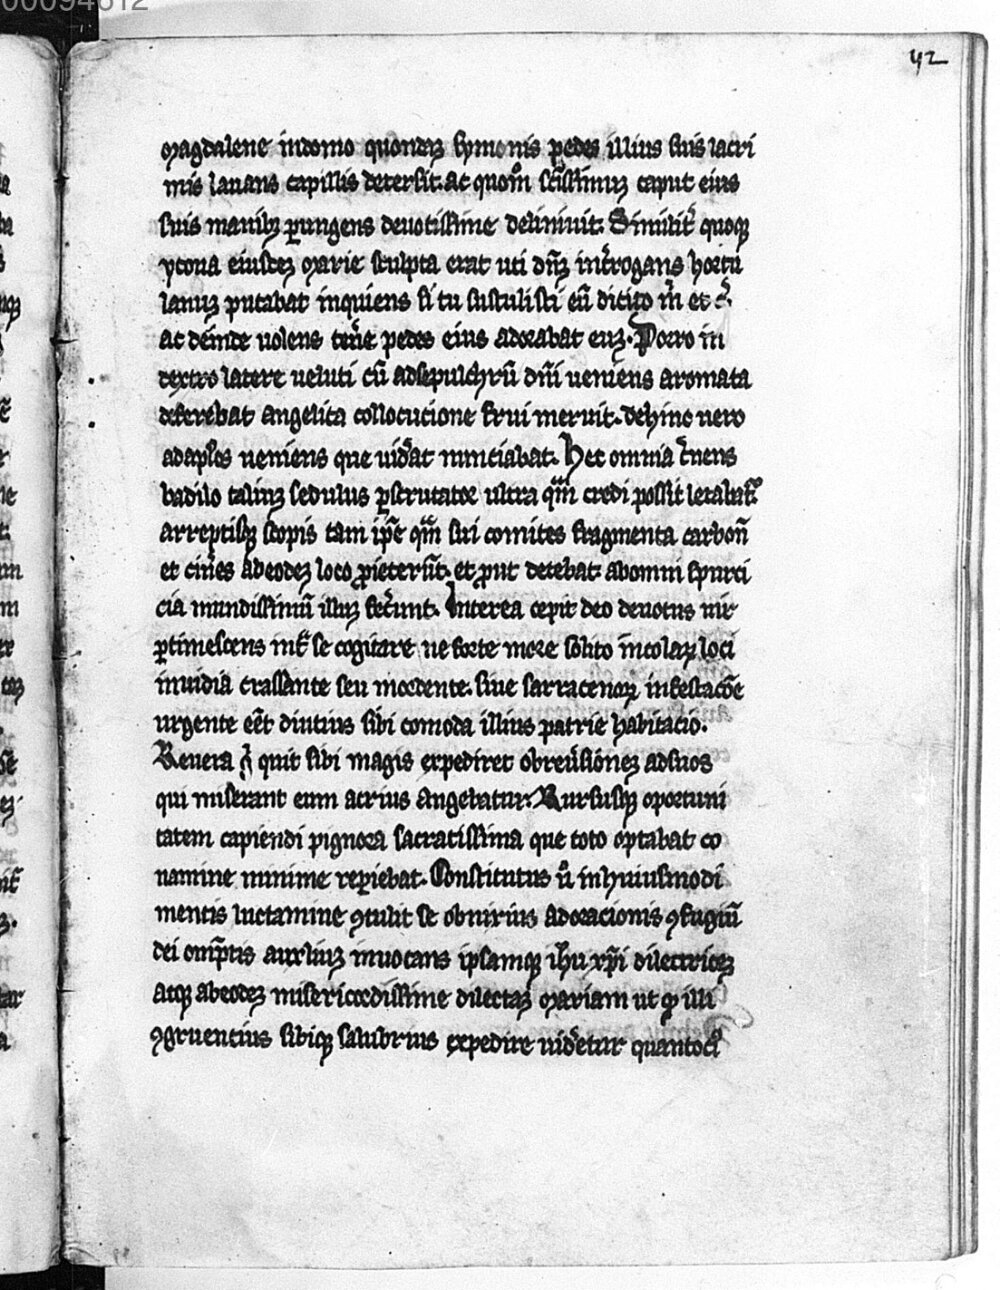 00094612
42
magdalene indomo quondaʒ symonis ꝑedes illius suis lacri
mis lauans capillis detersit. ac quom̄ scīssimuʒ caput eius
suis manibʒ ꝑungens deuotissime deliniuit. Similit̄ quoqʒ
ycona eiusdeʒ marie sculpta erat uti dn̄ʒ int̄rogans hortu
lanuʒ putabat inquiens si tu sustulisti eū dicito m̄ et c̄.
ac deinde uolens ten̄e pedes eius adorabat euʒ. Porro in
dextro latere ueluti cū adsepulchrū dn̄i ueniens aromata
deferebat angelica collocucione frui meruit. dehinc uero
adapl̄os ueniens que uid̄at nunciabat. Hec omnia c̄nens
badilo taliuʒ sedulus ꝑscrutator ultra qm̄ credi possit letabat̄
arreptisqʒ scopis tam ip̄e qm̄ sui comites fragmenta carbon̄
et cin̄es abeodeʒ loco ꝓiecerūt. et ꝓut decebat abomni spurci
cia mundissimū illuʒ fec̄unt. Interea cepit deo deuotus uir
ꝑtimescens int̄ se cogitare ne forte more solito incolaꝝ loci
inuidia crassante seu mordente. siue sarracenoꝝ infestacōe
urgente eēt diutius sibi comoda illius patrie habitacio.
Reuera q̄ quit sibi magis expediret obreūsioneʒ adsuos
qui miserant eum acrius angebatur. Rursusqʒ oportuni
tatem capiendi pignora sacratissima que toto optabat co
namine minime reꝑiebat. Constitutus ū inhuiusmodi
mentis luctamine ꝯtulit se obnixius adoracionis ꝯfugiū
dei omp̄tis auxiliuʒ inuocans ipsamqʒ ih̄u xp̄i dilectriceʒ
atqʒ abeodeʒ misericordissime dilectaʒ mariam ut qꝫ illi
ꝯgruentius sibiqʒ salubrius expedire uid̄etur quantociꝰ